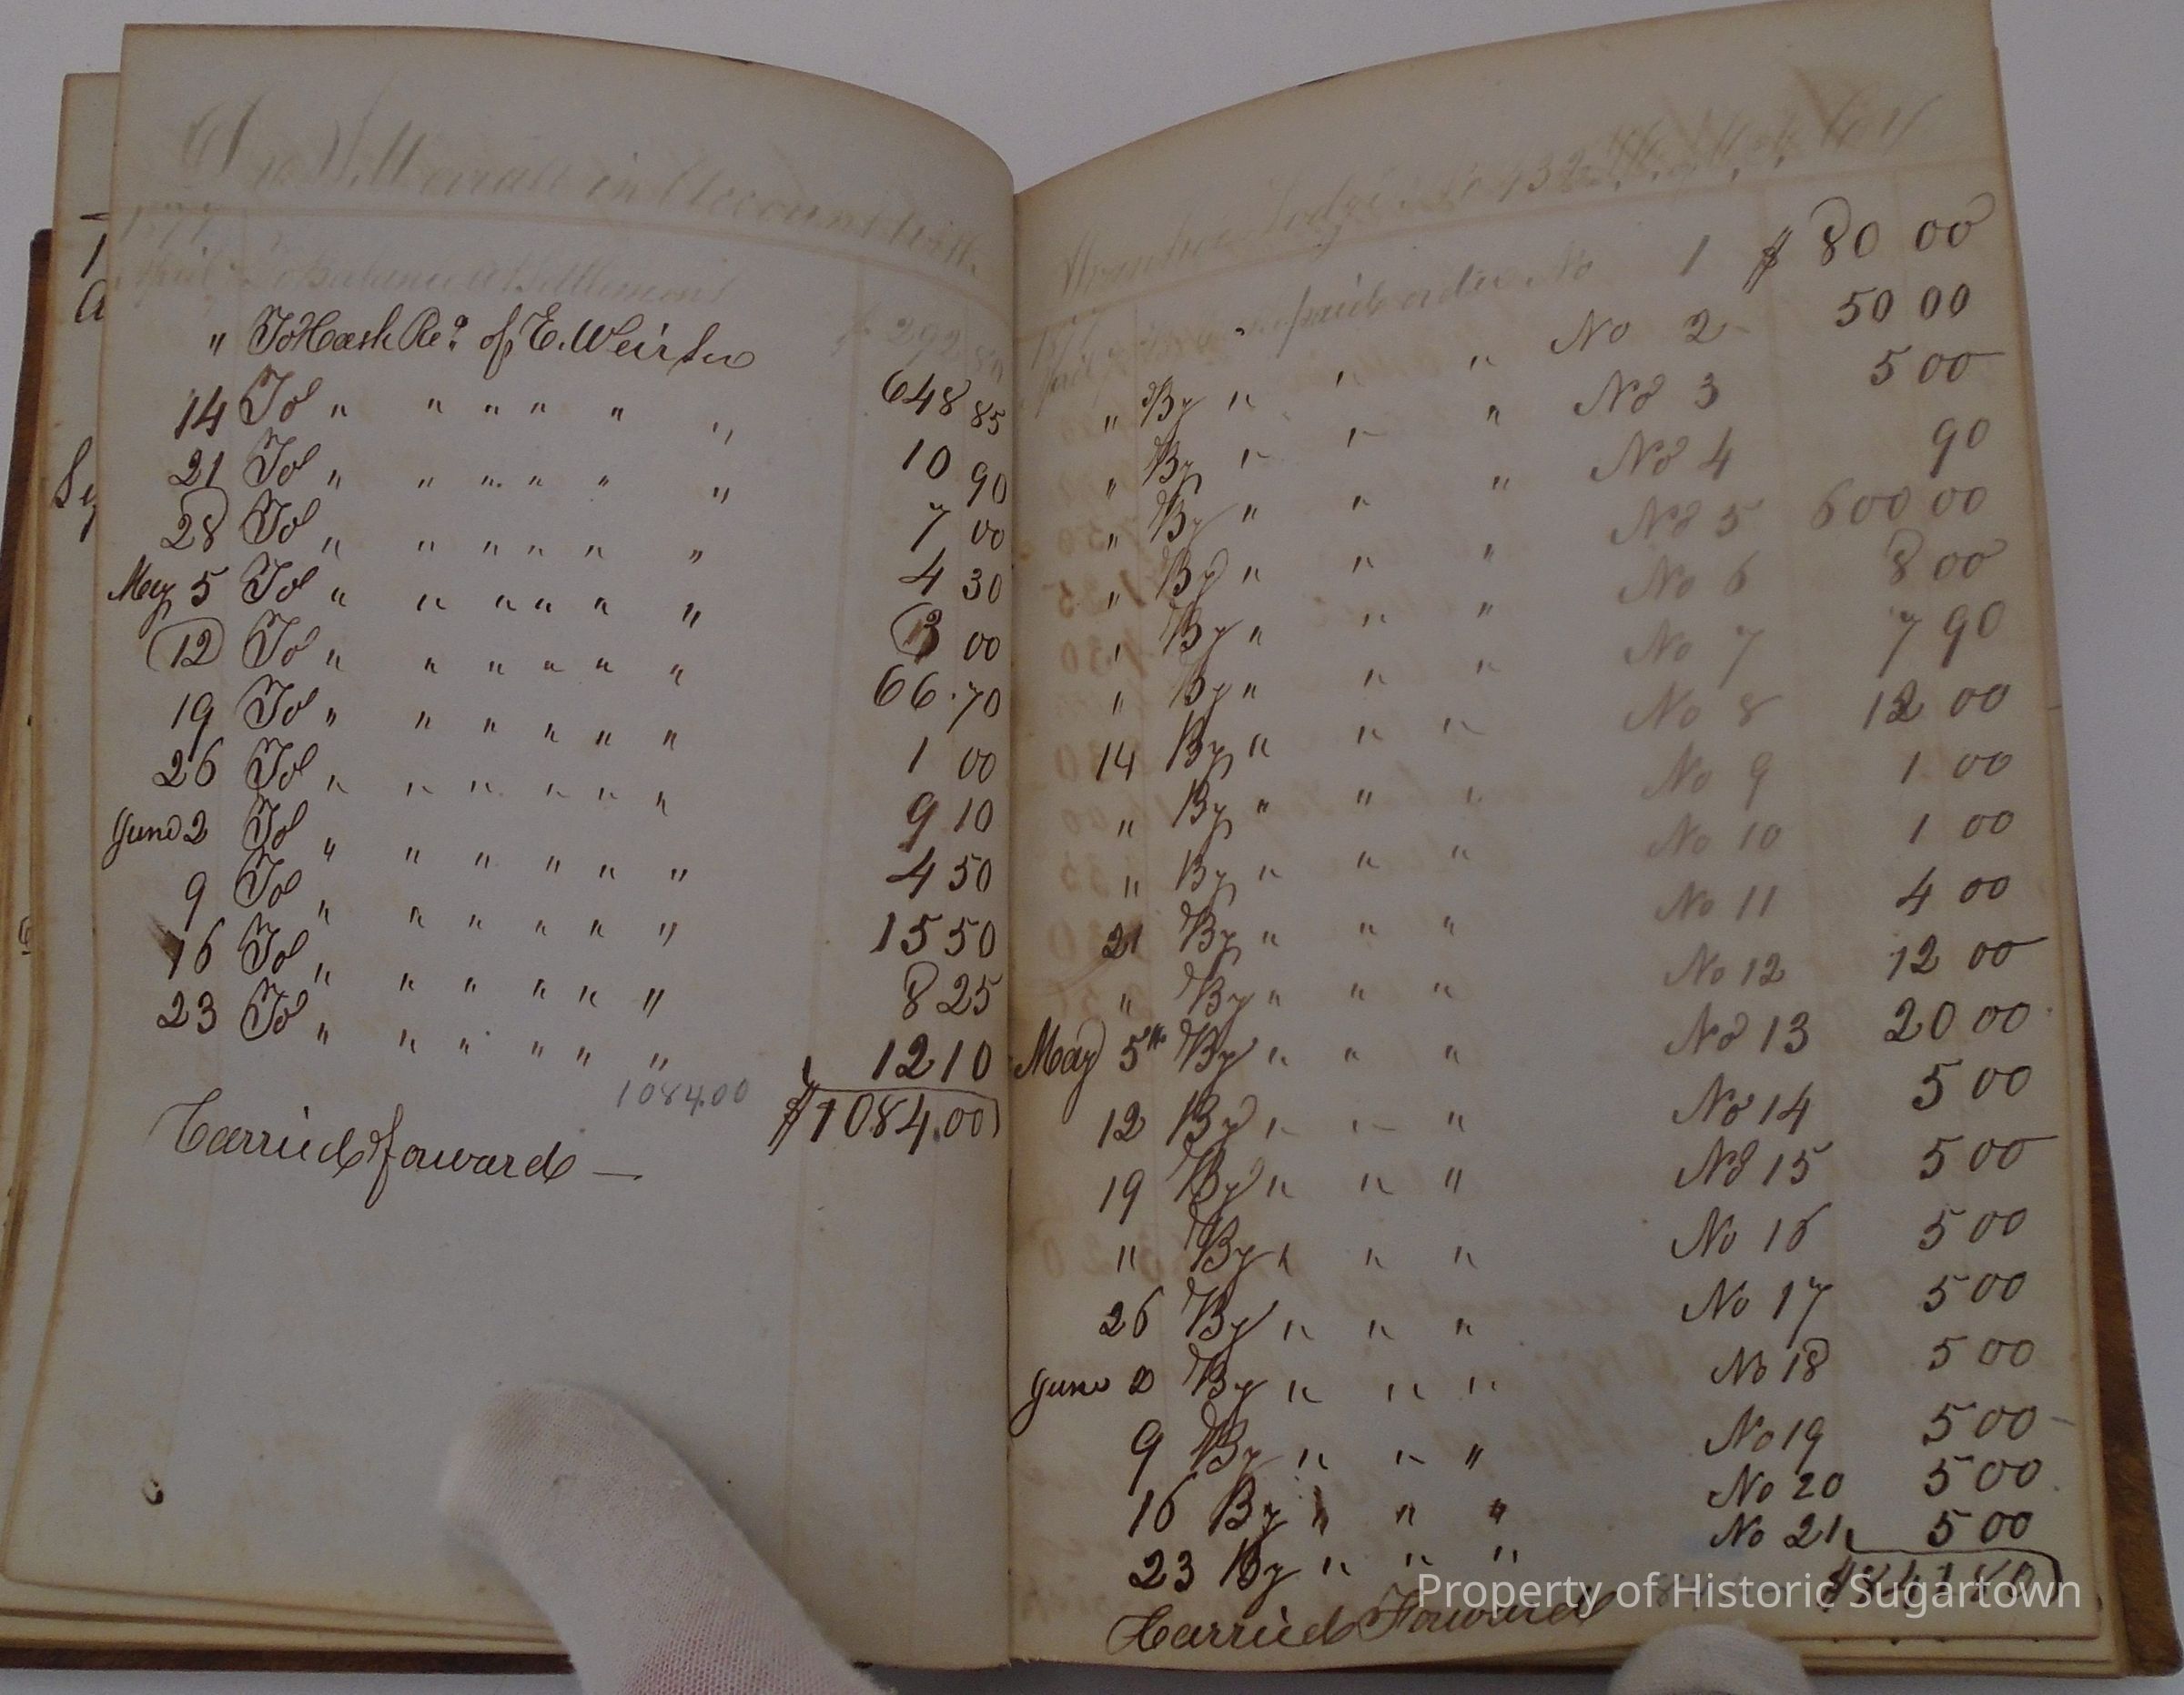 in Account with
To Balance at Settlement $ 292 80
" To Cash Rec'd of E. Weir Sec 648 85
14 To " " " " " " 10 90
21 To " " " " " " 7 00
28 To " " " " " " 4 30
May 5 To " " " " " " 3 00
12 To " " " " " " 66.70
19 To " " " " " " 1 00
26 To " " " " " " 9 10
June 2 To " " " " " " 4 50
9 To " " " " " " 15 50
16 To " " " " " " 8 25
23 To " " " " " " 12 10
1084.00 $1084.00
Carried forward —
Lodge No
paid order No 1 $ 80 00
" By " " " No 2 50 00
" By " " " No 3 5 00
" By " " " No 4 90
" By " " " No 5 600 00
" By " " " No 6 8 00
" By " " " No 7 7 90
14 By " " " No 8 12 00
" By " " " No 9 1 00
" By " " " No 10 1 00
21 By " " " No 11 4 00
" By " " " No 12 12 00
May 5th By " " " No 13 20 00
12 By " " " No 14 5 00
19 By " " " No 15 5 00
" By " " " No 16 5 00
26 By " " " No 17 5 00
June 2 By " " " No 18 5 00
9 By " " " No 19 5 00
16 By " " " No 20 5 00
23 By " " " No 21 5 00
Carried Forward
Property of Historic Sugartown